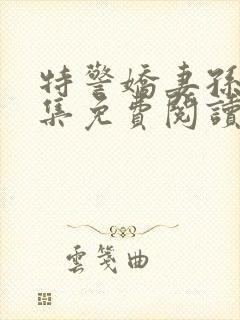 特警嬌妻孫
集免費閱讀
雲箋曲